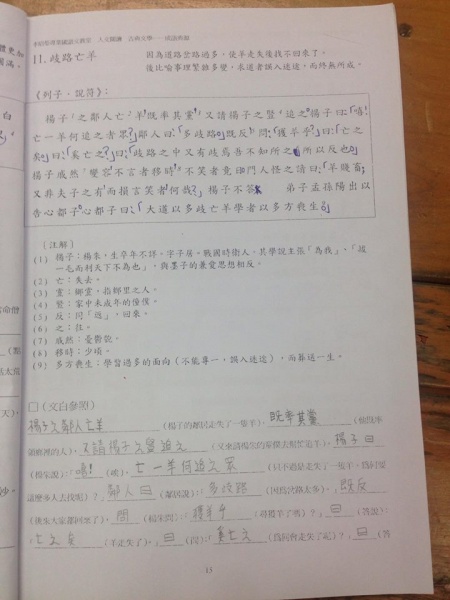 11. 歧路亡羊
因為道路岔路過多，使羊走失後找不回來了。
後比喻事理繁雜多變，求道者誤入迷途，而終無所成。
《列子．說符》：
楊子之鄰人亡羊既率其黨又請楊子之豎追之楊子曰：「嘻！
亡一羊何追之者眾？」鄰人曰：「多歧路。」既反問：「獲羊乎？」曰：「亡之
矣。」曰：「奚亡之？」曰：「歧路之中又有歧焉吾不知所之所以反也。」
楊子戚然變容不言者移時不笑者竟日門人怪之請曰：「羊賤畜
又非夫子之有而損言笑者何哉？」楊子不答　弟子孟孫陽出以
告心都子心都子曰：「大道以多歧亡羊學者以多方喪生。」
〔注解〕
(1) 楊子：楊朱，生卒年不詳，字子居，戰國時衛人。其學說主張「為我」、「拔
一毛而利天下不為也」，與墨子的兼愛思想相反。
(2) 亡：失去。
(3) 黨：鄉黨，指鄉里之人。
(4) 豎：家中未成年的僮僕。
(5) 反：同「返」，回來。
(6) 之：往。
(7) 戚然：憂鬱貌。
(8) 移時：少頃。
(9) 多方喪生：學習過多的面向（不能專一，誤入迷途），而葬送一生。
□〔文白參照〕
楊子之鄰人亡羊（楊子的鄰居走失了一隻羊），既率其黨
鄰鄉裡的人），又請楊子之豎追之（又來請楊朱的童僕去幫忙追羊）。楊子曰
（楊朱說）：「嘻！（哎），亡一羊何追之眾（只不過是走失了一隻羊，為何要
這麼多人去找呢）？」鄰人曰（鄰居說）：「多歧路（因為岔路太多）。」既反
（後來大家都回來了），問（楊朱問）：「獲羊乎（尋獲羊了嗎）？」曰（答說）：
「亡之矣（羊走失了）。」曰（問）：「奚亡之（為何會走失了呢）？」曰（答
15